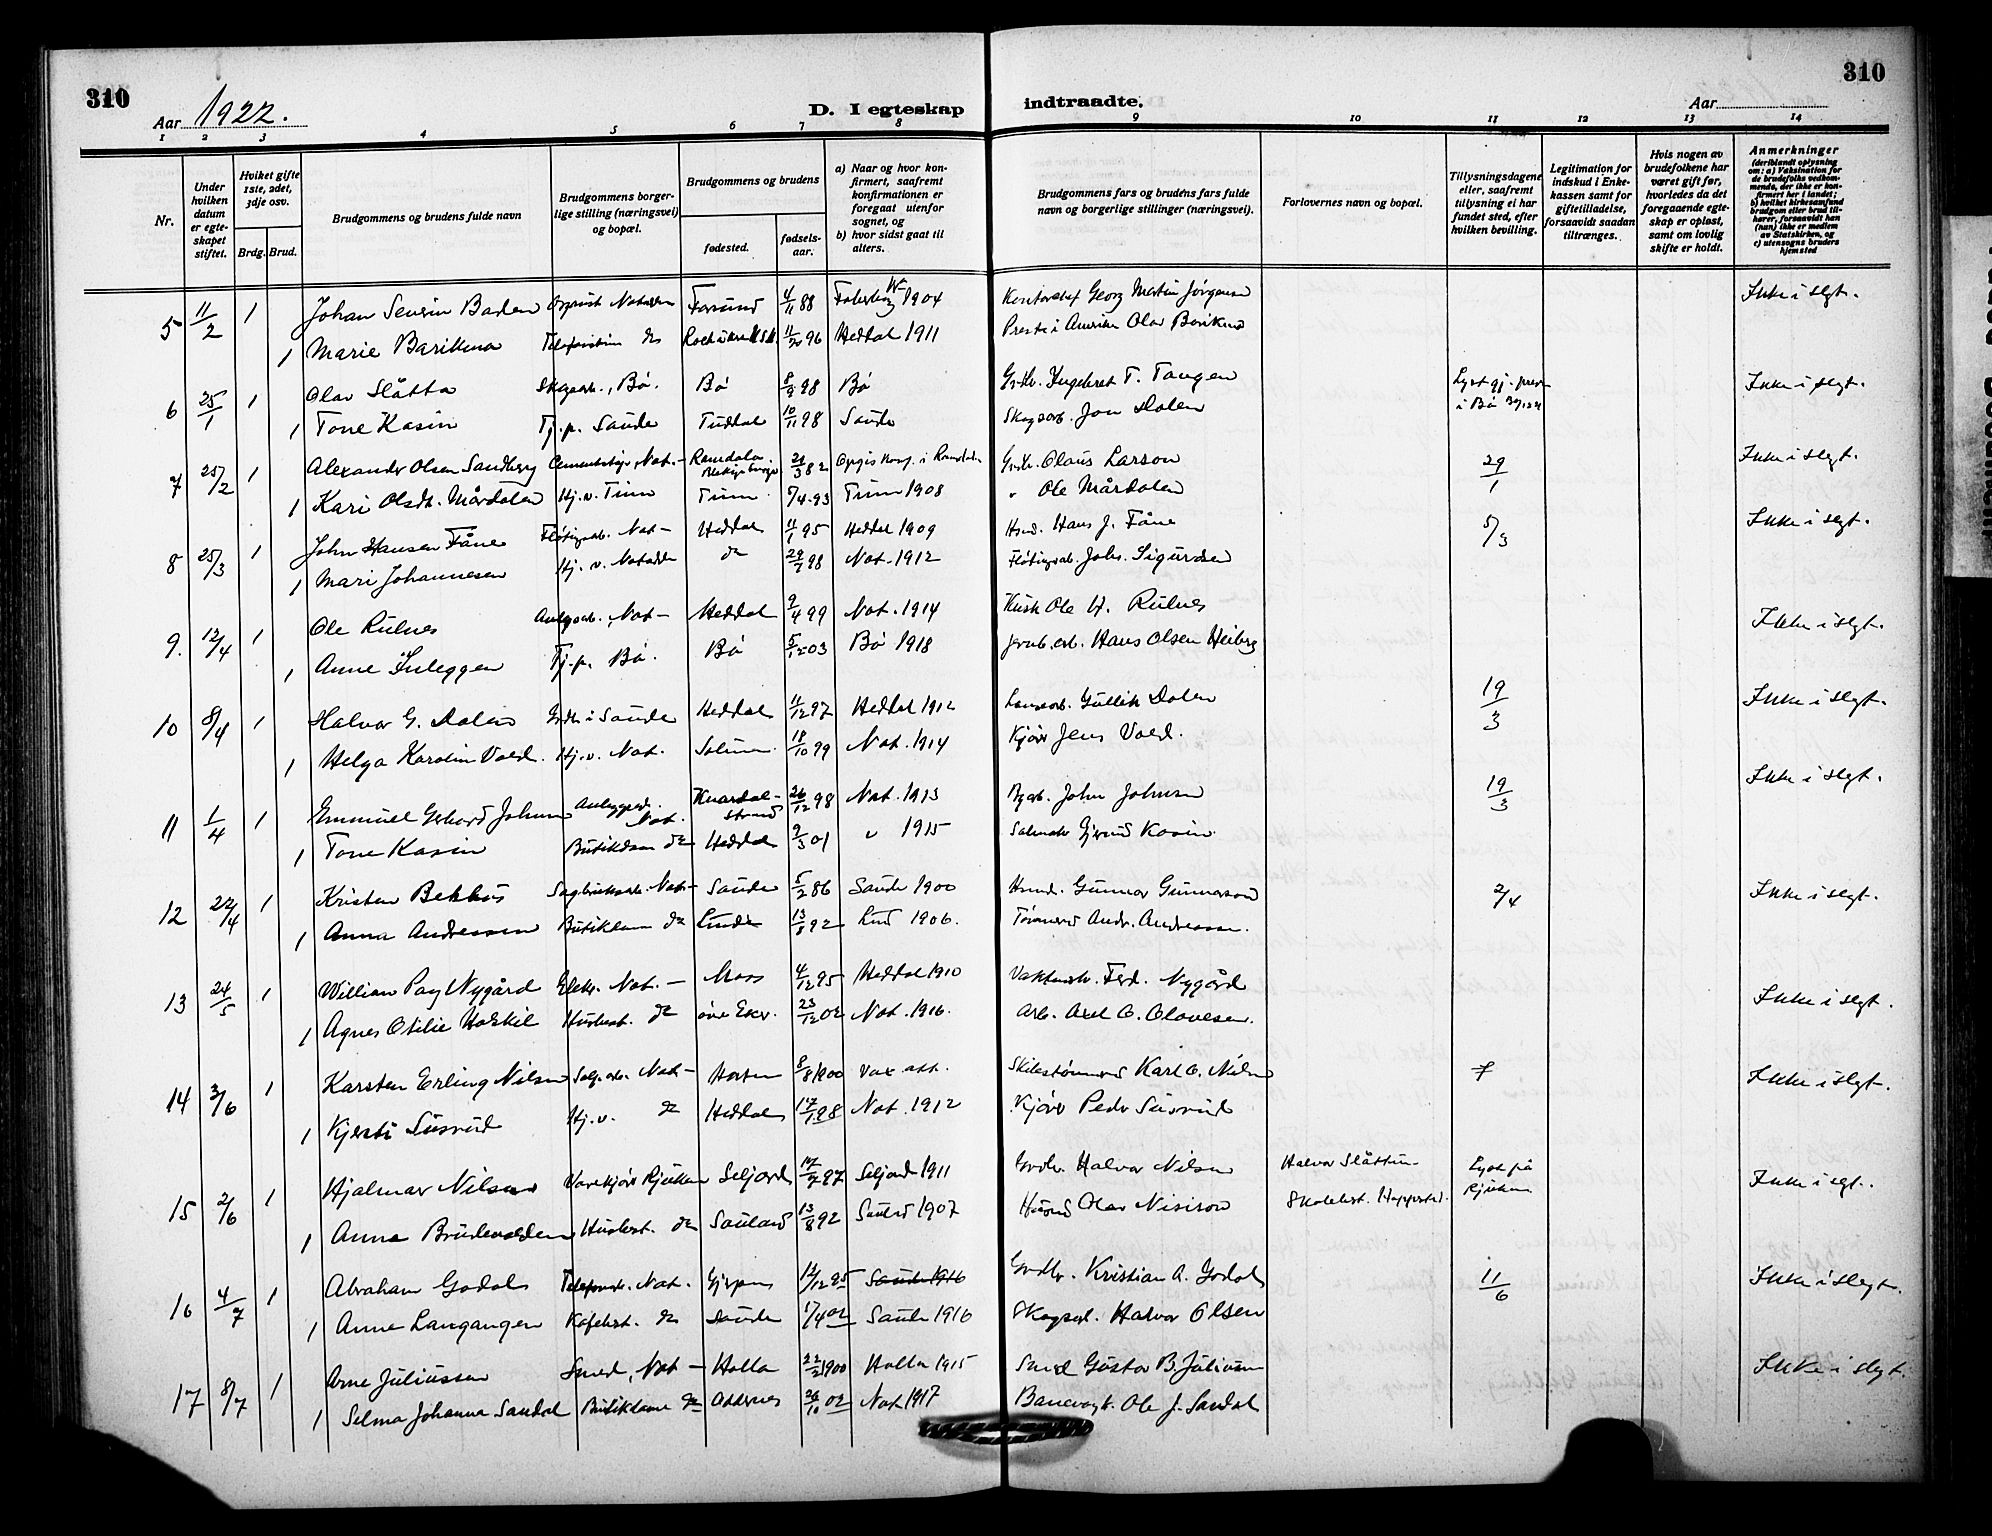 310
310
Aar 1922.
D. I egteskap indtraadte.
Aar
1 2 3 4 5 6 7 8 9 10 11 12 13 14
Nr.
Under hvilken datum er egteskapet stiftet.
Hviket gifte 1ste, 2det, 3dje osv.
Brdg. Brud.
Brudgommens og brudens fulde navn
Brudgommens borgerlige stilling (næringsvei) og bopæl.
Brudgommens og brudens
fødested.
fødselsaar.
a) Naar og hvor konfirmert, saafremt konfirmationen er foregaat utenfor sognet, og
b) hvor sidst gaat til alters.
Brudgommens fars og brudens fars fulde navn og borgerlige stillinger (næringsvei).
Forlovernes navn og bopæl.
Tillysningsdagene eller, saafremt tillysning ei har fundet sted, efter hvilken bevilling.
Legitimation for indskud i Enkekassen samt for giftetilladelse, forsaavidt saadan tiltrænges.
Hvis nogen av brudefolkene har været gift før, hvorledes da det foregaaende egteskap er opløst, samt om lovlig skifte er holdt.
Anmerkninger (deriblandt oplysning om: a) Vaksination for de brudefolks vedkommende, der ikke er konfirmert her i landet; b) hvilket kirkesamfund brudgom eller brud tilhører, forsaavidt han (hun) ikke er medlem av Statskirken, og c) utensogns bruders hjemsted
5 11/2 1 Johan Severin Baden Farsund 4/11 88 1904 Georg Martin Jørgensen Ikke i slegt.
1 Marie Barikmo 11/20 96 Heddal 1911 Prest i Amerika Olav Barikmo
6 25/1 1 Olav Slåtta Skogsarb., Bø. Bø 8/9 98 Bø Grdbr. Ingebret T. Tangen Lyst i Bø Ikke i slegt.
1 Tone Kasin Tj.p. Saude Tuddal 10/11 98 Saude Skogsarb. Jon Dalen
7 25/2 1 Alexander Olsen Sandberg Nat. Ramdala 21/3 82 Grdbr. Olaus Larson 29/1 Ikke i slegt.
1 Kari Olsdt. Mårdalen Hj.v. Tinn Tinn 5/4 93 Tinn 1908 " Ole Mårdalen
8 25/3 1 John Hansen Fåne Fløtingsarb. Nat Heddal 11/1 95 Heddal 1909 Hans J. Fåne 5/3 Ikke i slegt.
1 Mari Johannesen Hj. v. Notodden do 29/7 98 Not. 1912 Fløtingsarb. Johs. Sigurdsen
9. 12/4 1 Ole Rulnes Anlegsarb., Not Heddal 9/4 99 Not. 1914 Kusk Ole H. Rulnes Ikke i slegt.
1 Anne Inleggen Tj.p. Bø. Bø 5/12 03 Bø 1918 Jernb.arb. Hans Olsen Heiberg
10 8/4 1 Halvor G. Dalen Grdbr. i Saude Heddal 11/12 97 Heddal 1912 Gullik Dalen 19/3 Ikke i slegt.
1 Helga Karolin Vold. Hj.v. Not. Solum 18/10 99 Not. 1914 Kjører Jens Vold.
11 1/4 1 Emmuel Gerhard Johnsen Not. Knardalstrand 26/12 98 Not. 1913 Byarb. John Johnsen 19/3 Ikke i slegt.
1 Tone Kasin Butikdam do Heddal 9/3 01 " 1915 Kasin
12 22/4 1 Kristen Bekhus Sagbruksarb. Not Saude 5/2 86 Saude 1900 Gunnar Gunnarson 2/4 Ikke i slegt.
1 Anna Andreassen Butikdam do 13/8 92 1906. Tømmerm Andr. Andreassen.
13 24/5 1 William Pay Nygård Elekr. Not. Moss 4/12 95 Heddal 1910 Ferd. Nygård Ikke i slegt.
1 Agnes Otilie Holskil Husbest. do øvre Eker. 23/12 02 Not. 1916. Arb. Axel O. Olavesen.
14 3/6 1 Karsten Erling Nilsen Not Horten 8/8 1900 Vax att. Karl O. Nilsen Ikke i slegt.
1 Kjersti Susrud Hj.v. do Heddal 17/1 98 Not. 1912 Kjører Peder Susrud
15 2/6 1 Hjalmar Nilsen Varekjører Rjukan Seljord 17/7 97 Seljord 1911 Grdbr. Halvor Nilsen Halvor Slåttun Lyst på Rjukan Ikke i slegt.
1 Anna Brudevolden Husbest. do Sauland 13/8 92 Sauld 1907 Olav Nirison Skolebest. Hopperstad.
16 4/7 1 Abraham Godal Not. Gjerpen 13/12 95 Saude 1916 Grdbr. Kristian A. Godal 11/6 Ikke i slegt.
1 Anne Langangen Kafebest. do Saude 17/4 02 Saude 1916 Skogsarb. Halvor Olsen
17 8/7 1 Arne Juliussen Smed, Not Holla 22/2 1900 Holla 1915 Smed Gustav B. Juliussen Ikke i slegt.
1 Selma Johanna Sandal Butikdame do Oddernes 26/10 02 Not 1917 Banevogt. Ole J. Sandal